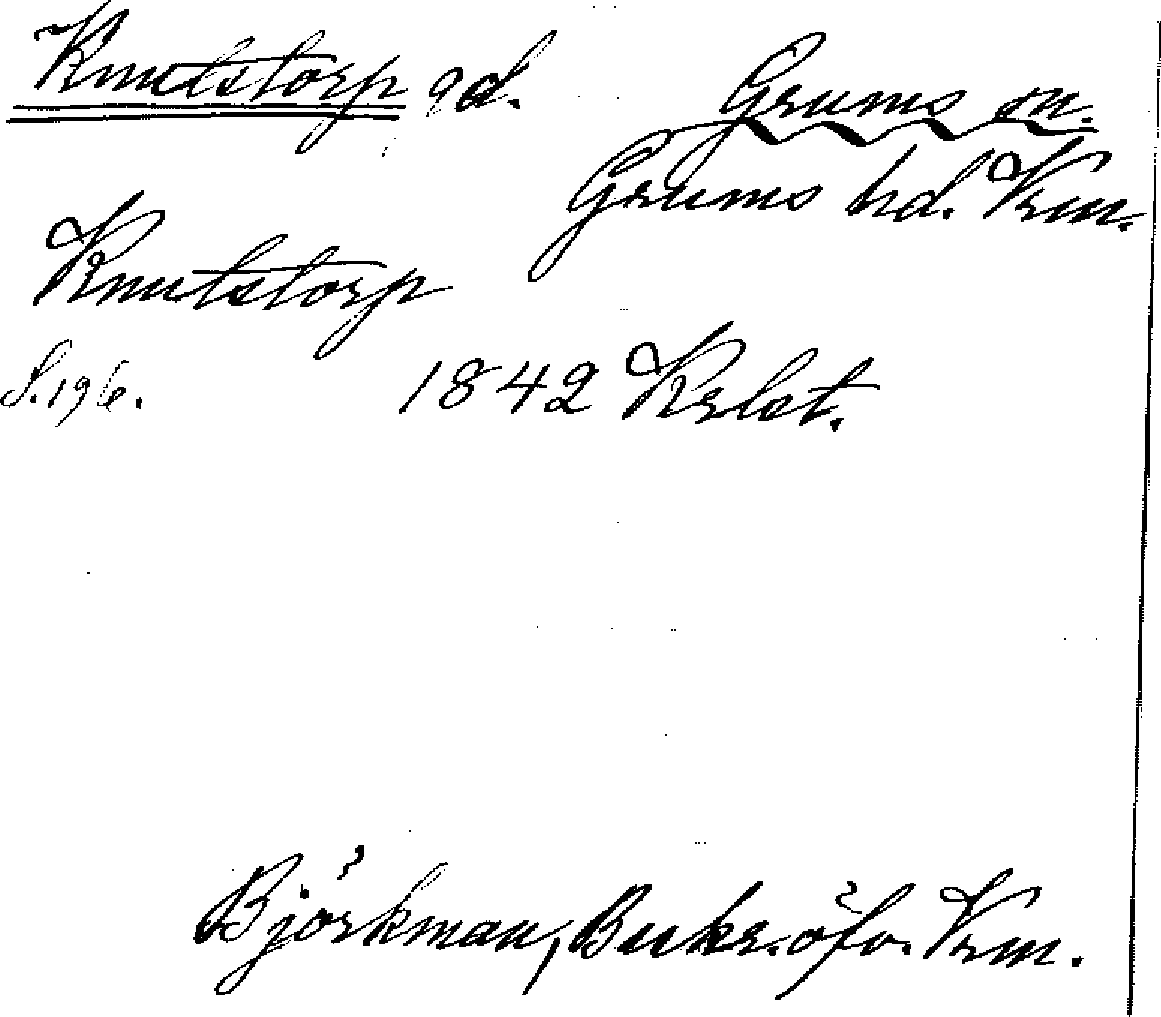 Knutstorp gd. Grums sn.
Grums hd. Vrm.
Knutstorp
S. 196. 1842 Krlst.
Björkman, Beskr. öfv. Vrm.